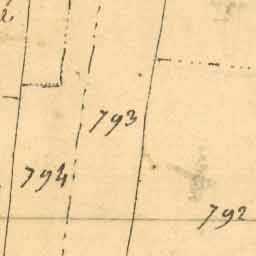 793
794
792